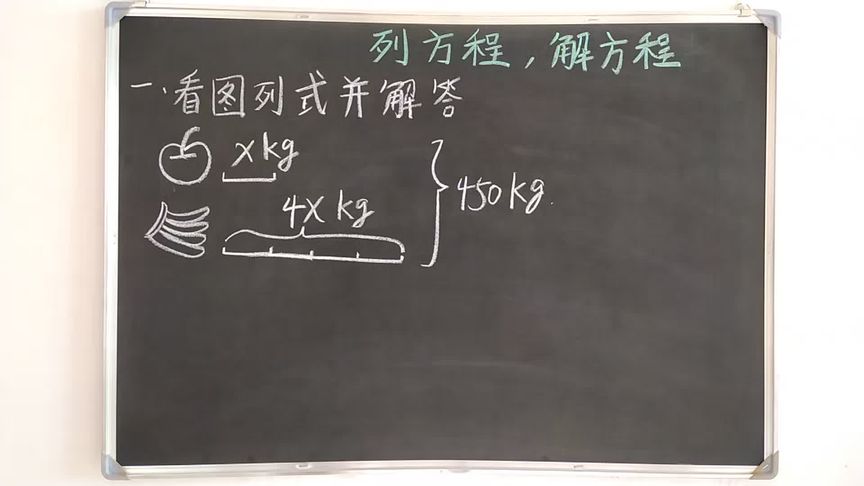 列方程，解方程
一、看图列式并解答
xkg
4x kg
450kg.